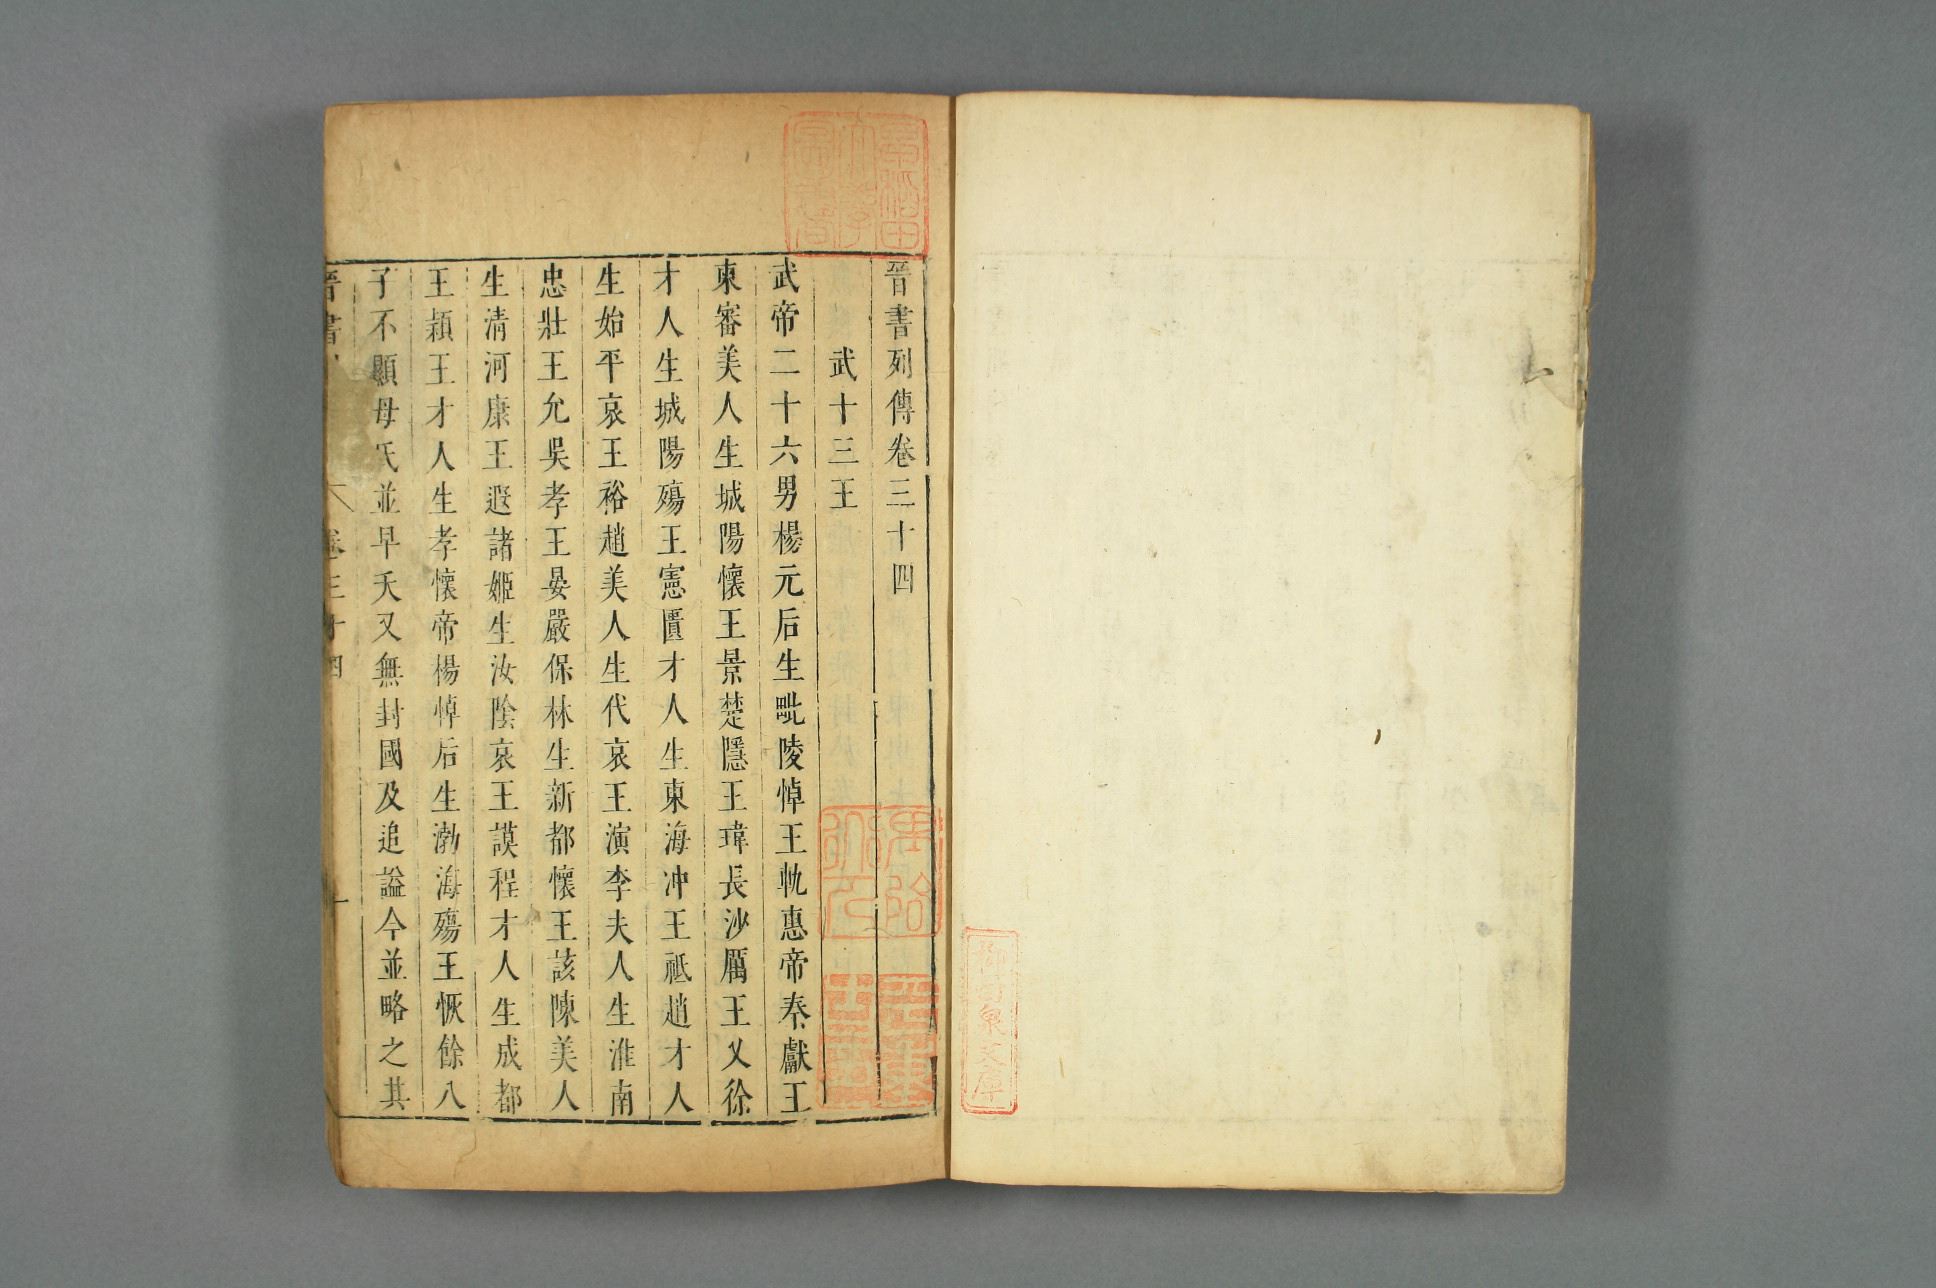 晉書列傳卷三十四
武十三王
武帝二十六男楊元后生毗陵悼王軌惠帝秦獻王
柬審美人生城陽懷王景楚隱王瑋長沙厲王乂徐
才人生城陽殤王憲匱才人生東海冲王祗趙才人
生始平哀王裕趙美人生代哀王演李夫人生淮南
忠壯王允吳孝王晏嚴保林生新都懷王該陳美人
生清河康王遐諸姬生汝陰哀王謨程才人生成都
王穎王才人生孝懷帝楊悼后生渤海殤王恢餘八
子不顯母氏並早夭又無封國及追謚今並略之其
晉書
卷三十四
一
早稻田大學圖書
文庫